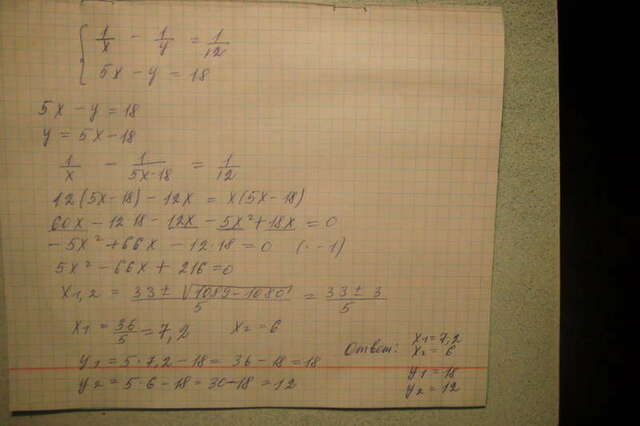 1/x - 1/y = 1/12
5x - y = 18
5x - y = 18
y = 5x - 18
1/x - 1/(5x-18) = 1/12
12(5x-18) - 12x = x(5x-18)
60x - 12·18 - 12x - 5x² + 18x = 0
-5x² + 66x - 12·18 = 0 (· -1)
5x² - 66x + 216 = 0
x1,2 = (33 ± √(1089-1080))/5 = (33 ± 3)/5
x1 = 36/5 = 7,2 x2 = 6
y1 = 5·7,2 - 18 = 36 - 18 = 18
y2 = 5·6 - 18 = 30 - 18 = 12
Ответ: x1 = 7,2
x2 = 6
y1 = 18
y2 = 12